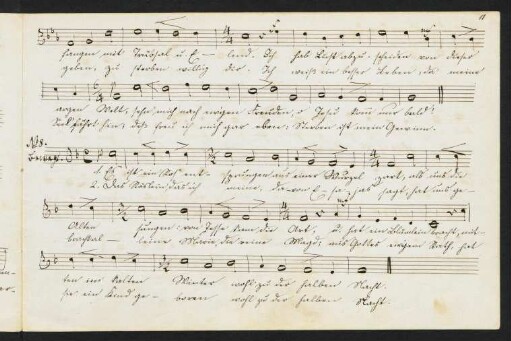 fangen mit Trübsal u. E- lend. Ich hab Lust abzu- scheiden von dieser
geben, zu sterben willig dir. Ich weiß ein besser Leben, da meine
argen Welt, sehn' mich nach ewigen Freuden, o Jesu kom nur bald!
Seel fährt hin; deß freu ich mich gar eben; Sterben ist mein Gewinn.
No 8.
1. Es ist ein Ros' ent- sprungen aus einer Wurzel zart, als uns die
2. Das Röslein, das ich meine, da-von E-sa-jas sagt, hat uns ge-
Alten sungen: von Jesse kam die Art, u. hat ein Blümlein bracht, mit-
bracht al- leine Marie, die reine Magd; aus Gottes ewgem Rath, hat
ten im kalten Winter wohl zu der halben Nacht.
sie ein Kind ge- boren wohl zu der halben Nacht.